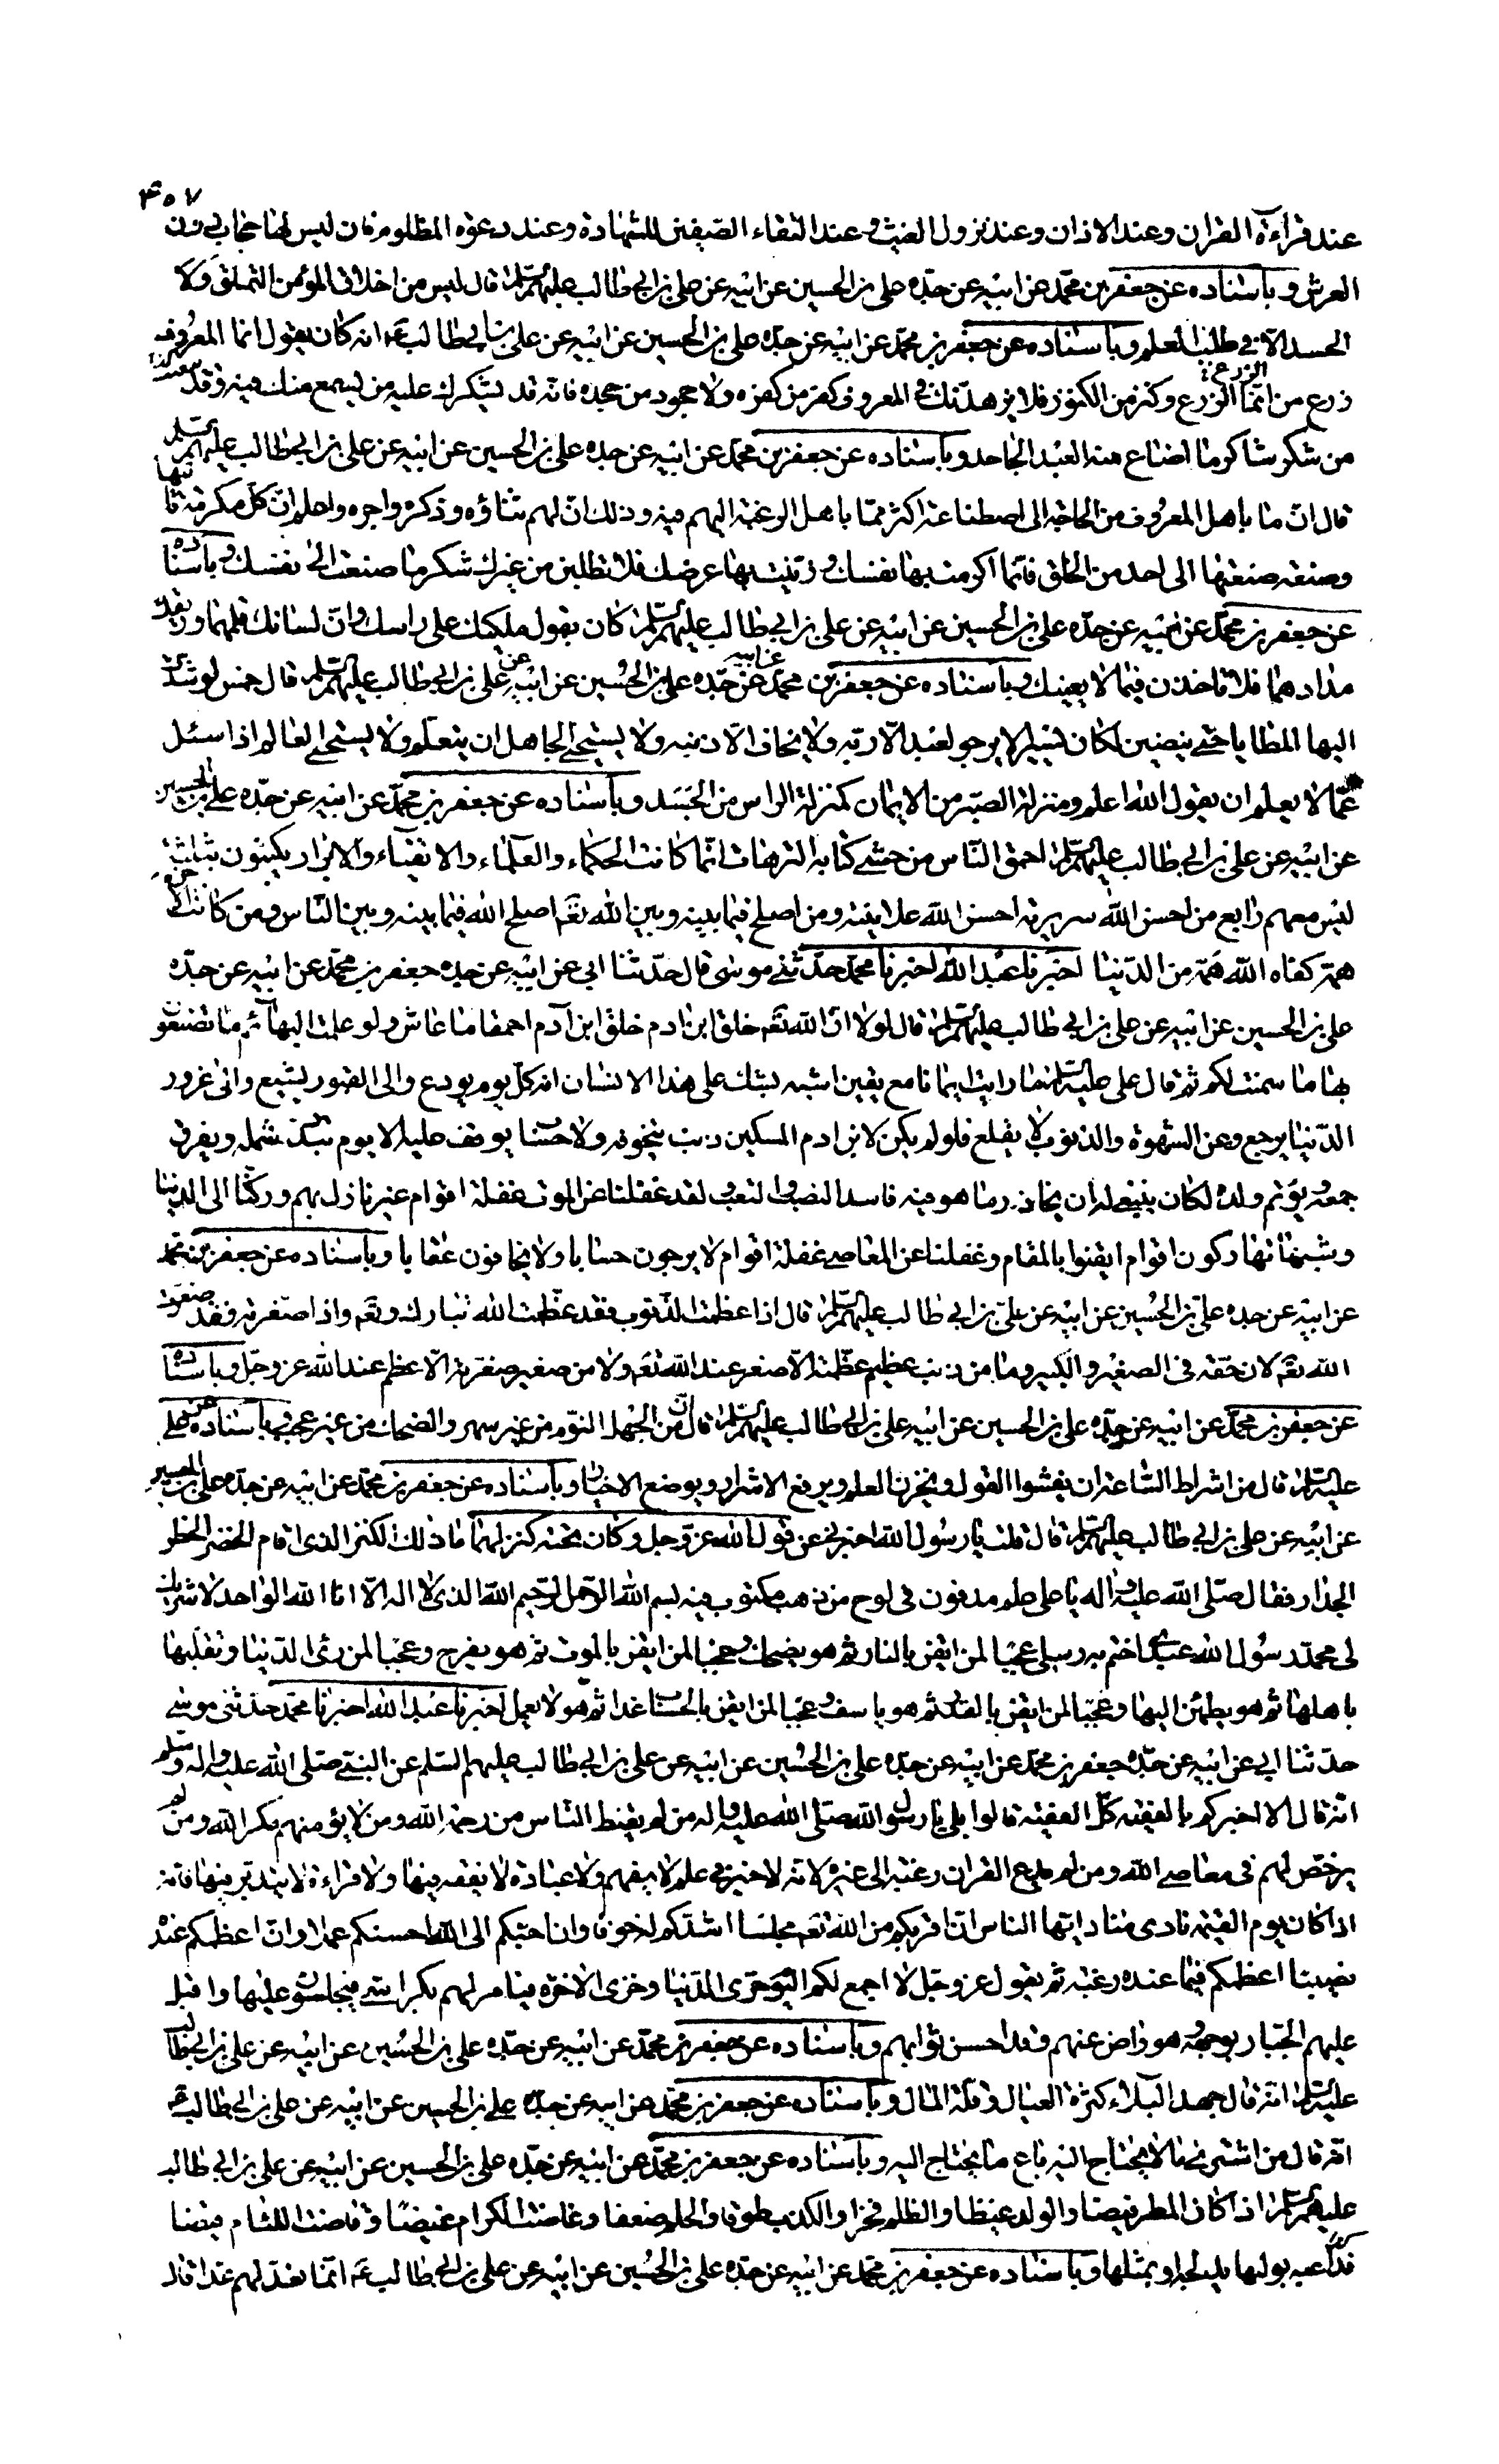 ٣٥٧
عند قراءة القران وعند الاذان وعند نزول الغيث و عند التقاء الصّفين للشهادة وعند دعوة المظلوم فان ليس لها حجاب دون
العرش وباسناده عن جعفر بن محمّد عن ابيه عن جدّه على بن الحسين عن ابيه عن على بن ابي طالب عليهم السّلم قال ليس من اخلاق المؤمن التملق ولا
الحسد الّا في طلب العلم وباسناده عن جعفر بن محمّد عن ابيه عن جدّه على بن الحسين عن ابيه عن على بن ابي طالب ع انه كان يقول انما المعروف
زرع من انمّا الزرع وكنز من الكنوز فلا يزهدّنك في المعروف كفر من كفره ولا جحود من جحده فانّه قد يشكرك عليه من يسمع منك فيه وقد
من شكر شاكر ما اضاع منه العبد الجاحد وباسناده عن جعفر بن محمّد عن ابيه عن جده على بن الحسين عن ابيه عن على بن ابي طالب عليهم السلم
قال ان ما باهل المعروف من الحاجة الى اصطناعه اكثر ممّا باهل الرغبة اليهم فيه وذلك انّ لهم ثناؤه وذكره واجره واعلم ان كلّ مكرمة
وصنعة صنعتها الى احد من الخلق فانّما اكرمت بها نفسك وزيّنت بها عرضك فلا تطلبن من غيرك شكر ما صنعت الى نفسك وباسناده
عن جعفر بن محمّد عن ابيه عن جدّه على بن الحسين عن ابيه عن على بن ابي طالب عليهم السّلم كان يقول ملكيك على راسك وانّ لسانك قلمهما وريقك
مدادهما فلا تاخذن فيما لا يعنيك وباسناده عن جعفر بن محمّد عن ابيه عن جدّه على بن الحسين عن ابيه عن على بن ابي طالب عليهم السّلم قال خمس لو شدّت
اليها المطايا حتّى ينضين لكان يسير لا يرجو العبد الّا ربّه ولا يخاف الّا ذنبه ولا يستحي الجاهل ان يتعلّم ولا يستحي العالم اذا سئل
عمّا لا يعلم ان يقول اللّه اعلم ومنزلة الصّبر من الايمان كمنزلة الراس من الجسد وباسناده عن جعفر بن محمّد عن ابيه عن جدّه على بن الحسين
عن ابيه عن على بن ابي طالب عليهم السّلم احمق النّاس من حشى كتابه الترهات انّما كانت الحكماء والعلماء والاتقياء والابرار يكتبون بثلثة
ليس معهم رابع من احسن اللّه سريرته احسن اللّه علانيته ومن اصلح فيما بينه وبين اللّه تع اصلح اللّه فيما بينه وبين النّاس ومن كانت الاخرة
همّه كفاه اللّه همّه من الدّنيا اخبرنا عبد اللّه اخبرنا محمّد حدّثني موسى قال حدّثنا ابي عن ابيه عن جده جعفر بن محمّد عن ابيه عن جدّه
على بن الحسين عن ابيه عن على بن ابي طالب عليهم السّلم قال لولا انّ اللّه تع خلق ابن ادم خلق ابن آدم احمقا ما عاش ولو علمت البهائم ما تصنعون
بها ما سمنت لكم ثم قال على عليه السّلم ما رايت ايمانا مع يقين اشبه بشك على هذا الانسان انه كلّ يوم يودع والى القبور يشيع والى غرور
الدّنيا يرجع وعن الشهوة والذنوب لا يقلع فلو لم يكن لابن ادم المسكين ذنب يتخوفه ولا حساب يوقف عليه الا يوم يبدد شمله ويفرق
جمعه ويؤتم ولده لكان ينبغي له ان يحاذر ما هو فيه باشد النصب والتعب لقد غفلنا عن الموت غفلة اقوام غير نازل بهم وركنّا الى الدنيا
وشبهاتها ركون اقوام ايقنوا بالمقام وغفلنا عن المعاصي غفلة اقوام لا يرجون حسابا ولا يخافون عقابا وباسناده عن جعفر بن محمّد
عن ابيه عن جده علىّ بن الحسين عن ابيه عن علىّ بن ابي طالب عليهم السّلم قال اذا عظمت الذّنوب فقد عظّمت اللّه تبارك وتع واذا صغّرته فقد صغرت
اللّه تع لان حقّه في الصغير والكبير وما من ذنب عظيم عظّمته الّا صغر عند اللّه تع ولا من صغير صغرته الّا عظم عند اللّه عزّ وجلّ وباسناده
عن جعفر بن محمّد عن ابيه عن جدّه على بن الحسين عن ابيه على بن ابي طالب عليهم السّلم قال انّ من الجهل النّوم من غير سهر والضحك من غير عجب وباسناده عن على
عليه السّلم قال من اشراط السّاعة ان يفشوا القول ويخزن العلم ويرفع الاشرار ويوضع الاخيار وباسناده عن جعفر بن محمّد عن ابيه عن جدّه على بن الحسين
عن ابيه عن على بن ابي طالب عليهم السّلم قال قلت يا رسول اللّه اخبرني عن قول اللّه عزّ وجل وكان تحته كنز لهما ما ذلك الكنز الذي اقام الخضر الخطر
الجدار فقال صلّى اللّه عليه واله يا على علم مدفون في لوح من ذهب مكتوب فيه بسم اللّه الرّحمن الرّحيم اللّه الذي لا اله الّا انا اللّه الواحد لا شريك
لى محمّد رسول اللّه عبدي اختم به رسلي عجبا لمن ايقن بالنار ثم هو يضحك وعجبا لمن ايقن بالموت ثم هو يفرح وعجبا لمن رئى الدّنيا وتقلبها
باهلها ثم هو يطمئن اليها وعجبا لمن ايقن بالقدر ثم هو ياسف وعجبا لمن ايقن بالحساب غدا ثم هو لا يعمل اخبرنا عبد اللّه اخبرنا محمّد حدّثني موسى
حدّثنا ابي عن ابيه عن جدّه جعفر بن محمّد عن ابيه عن جدّه على بن الحسين عن ابيه عن على بن ابي طالب عليهم السلم عن النبي صلى اللّه عليه واله وسلم
انّه قال الا اخبركم بالفقيه كلّ الفقيه قالوا بلى يا رسول اللّه صلّى اللّه عليه واله من لم يقنط النّاس من رحمة اللّه ومن لا يؤمنهم مكر اللّه ومن لم
يرخّص لهم في معاصي اللّه ومن لم يدع القران رغبة الى غيره لانّه لا خير في علم لا يفهم ولا عبادة لا تفقه فيها ولا قراءة لا يتدبّر فيها فانّه
اذا كان يوم القيمة نادى مناد ايّها الناس انّ اقربكم من اللّه تع مجلسا اشدّكم له خوفا وانّ احبّكم الى اللّه احسنكم عملا وانّ اعظمكم عنده
نصيبا اعظمكم فيما عنده رغبة ثم يقول عزّ وجلّ لا اجمع لكم اليوم خزي الدّنيا وخزي الاخرة فيامر لهم بكراسي فيجلسون عليها واقبل
عليهم الجبّار بوجهه وهو راض عنهم وقد احسن ثوابهم وباسناده عن جعفر بن محمّد عن ابيه عن جدّه على بن الحسين عن ابيه عن على بن ابي طالب
عليه السّلم انّه قال جهد البلاء كثرة العيال وقلّة المال وباسناده عن جعفر بن محمّد عن ابيه عن جدّه على بن الحسين عن ابيه عن على بن ابي طالب ع
انّه قال من اشترى ما لا يحتاج اليه باع ما يحتاج اليه وباسناده عن جعفر بن محمّد عن ابيه عن جدّه على بن الحسين عن ابيه عن على بن ابي طالب
عليهم السّلم اذا كان المطر قيضا والولد غيظا والظلم فخرا والكذب طوفا والحلم ضعفا وغاضت الكرام غيضًا وفاضت اللئام فيضا
بولها وباسناده عن جعفر بن محمّد عن ابيه عن جدّه على بن الحسين عن ابيه عن على بن ابي طالب ع